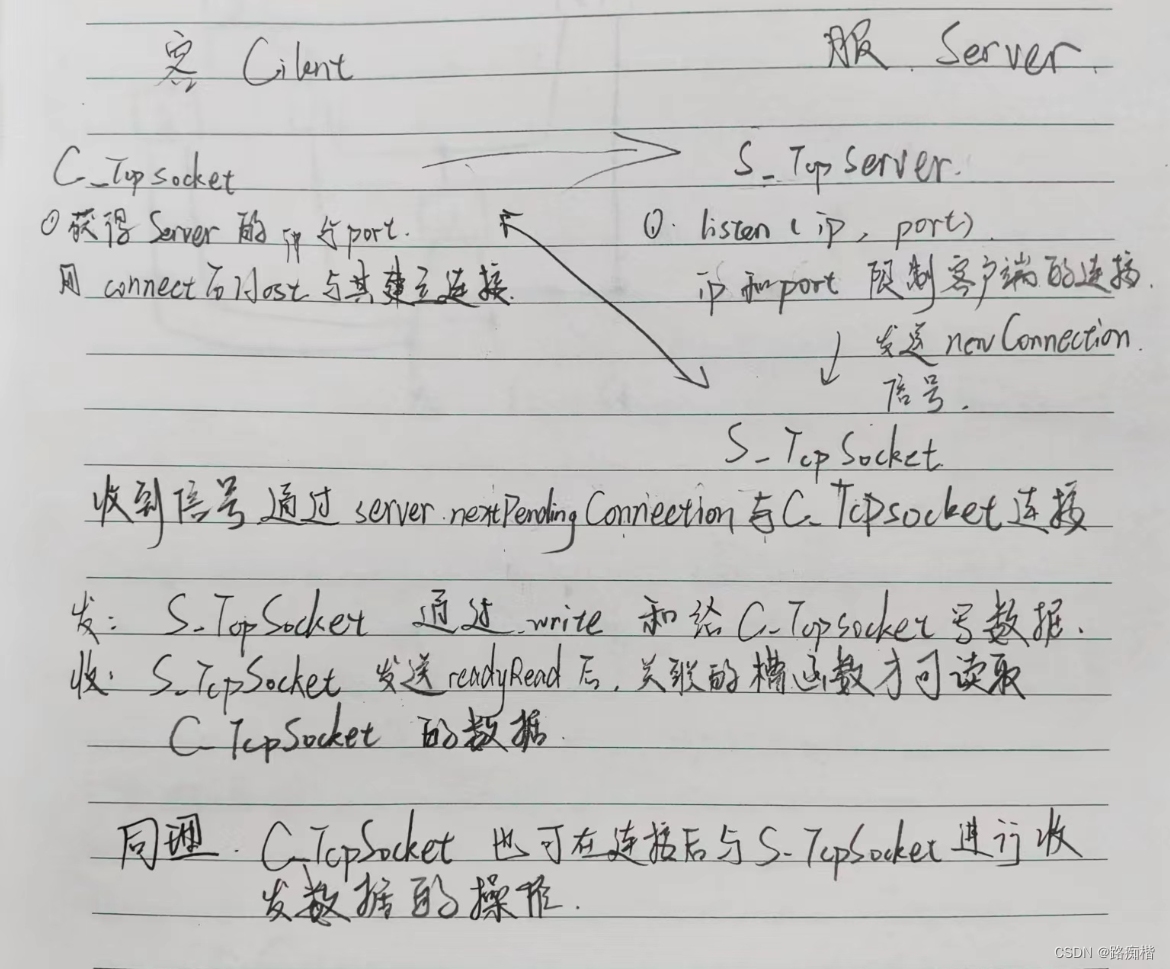 客 Cilent
服 Server.
C_Tcpsocket
S_TcpServer.
① 获得 Server 的 ip 与port.
用 connectToHost 与其建立连接.
①. listen ( ip, port)
ip 和port 限制客户端的连接.
发送 newConnection.
信号.
S_TcpSocket
收到信号 通过 server.nextPendingConnection 与C_Tcpsocket 连接
发: S_TcpSocket 通过 write 和给 C_Tcpsocket 写数据.
收: S_TcpSocket 发送 readyRead 后, 关联的槽函数才可读取
C_TcpSocket 的数据.
同理. C_TcpSocket 也可在连接后与 S_TcpSocket 进行收
发数据的操作.
CSDN @路痴楷